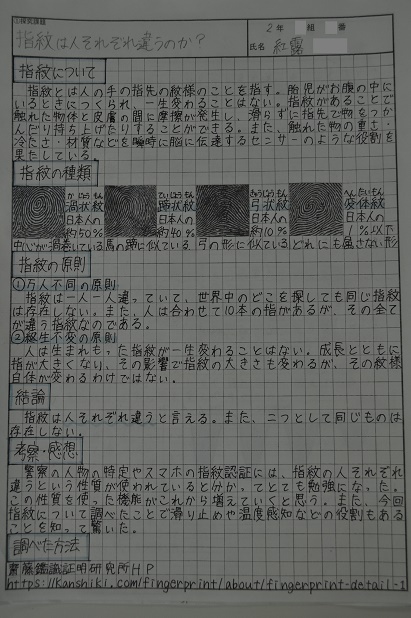 ①探究課題
指紋は人それぞれ違うのか?
2年 組 番
氏名 紅露
指紋について
指紋とは人の手の指先の紋様のことを指す。胎児がお腹の中に
いるときにつくられ、一生変わることはない。指紋があることで
触れた物体と皮膚の間に摩擦が発生し、滑らずに指先で物をつか
んだり持ち上げたりすることができる。また、触れた物の重さ・
冷たさ・材質などを瞬時に脳に伝達するセンサーのような役割を
果たしている。
指紋の種類
かじょうもん
渦状紋
日本人の
約50%
ていじょうもん
蹄状紋
日本人の
約40%
きゅうじょうもん
弓状紋
日本人の
約10%
へんたいもん
変体紋
日本人の
1%以下
中心が渦巻いている
馬の蹄に似ている
弓の形に似ている
どれにも属さない形
指紋の原則
①万人不同の原則
指紋は一人一人違っていて、世界中のどこを探しても同じ指紋
は存在しない。また、人は合わせて10本の指があるが、その全て
が違う指紋なのである。
②終生不変の原則
人は生まれもった指紋が一生変わることはない。成長とともに
指が大きくなり、その影響で指紋の大きさも変わるが、その紋様
自体が変わるわけではない。
結論
指紋は人それぞれ違うと言える。また、二つとして同じものは
存在しない。
考察・感想
警察の人物の特定やスマホの指紋認証には、指紋の人それぞれ
違うという性質が使われていると分かり、てとても勉強になった。
この性質を使った機能がこれから増えていくと思う。また、今回
指紋について調べたことで滑り止めや温度感知などの役割もある
ことを知って驚いた。
調べた方法
齋藤鑑識証明研究所HP
https://kanshiki.com/fingerprint/about/fingerprint-detail-1